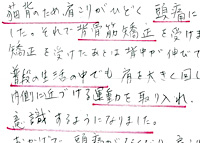 猫背のため肩こりがひどく 頭痛に
した。それで背骨筋矯正を受けま
矯正を受けたあとは背中が伸びて
普段の生活の中でも肩を大きく回し
内側に近づける運動を取り入れ、
意識するようになりました。
おかげで 頭痛が